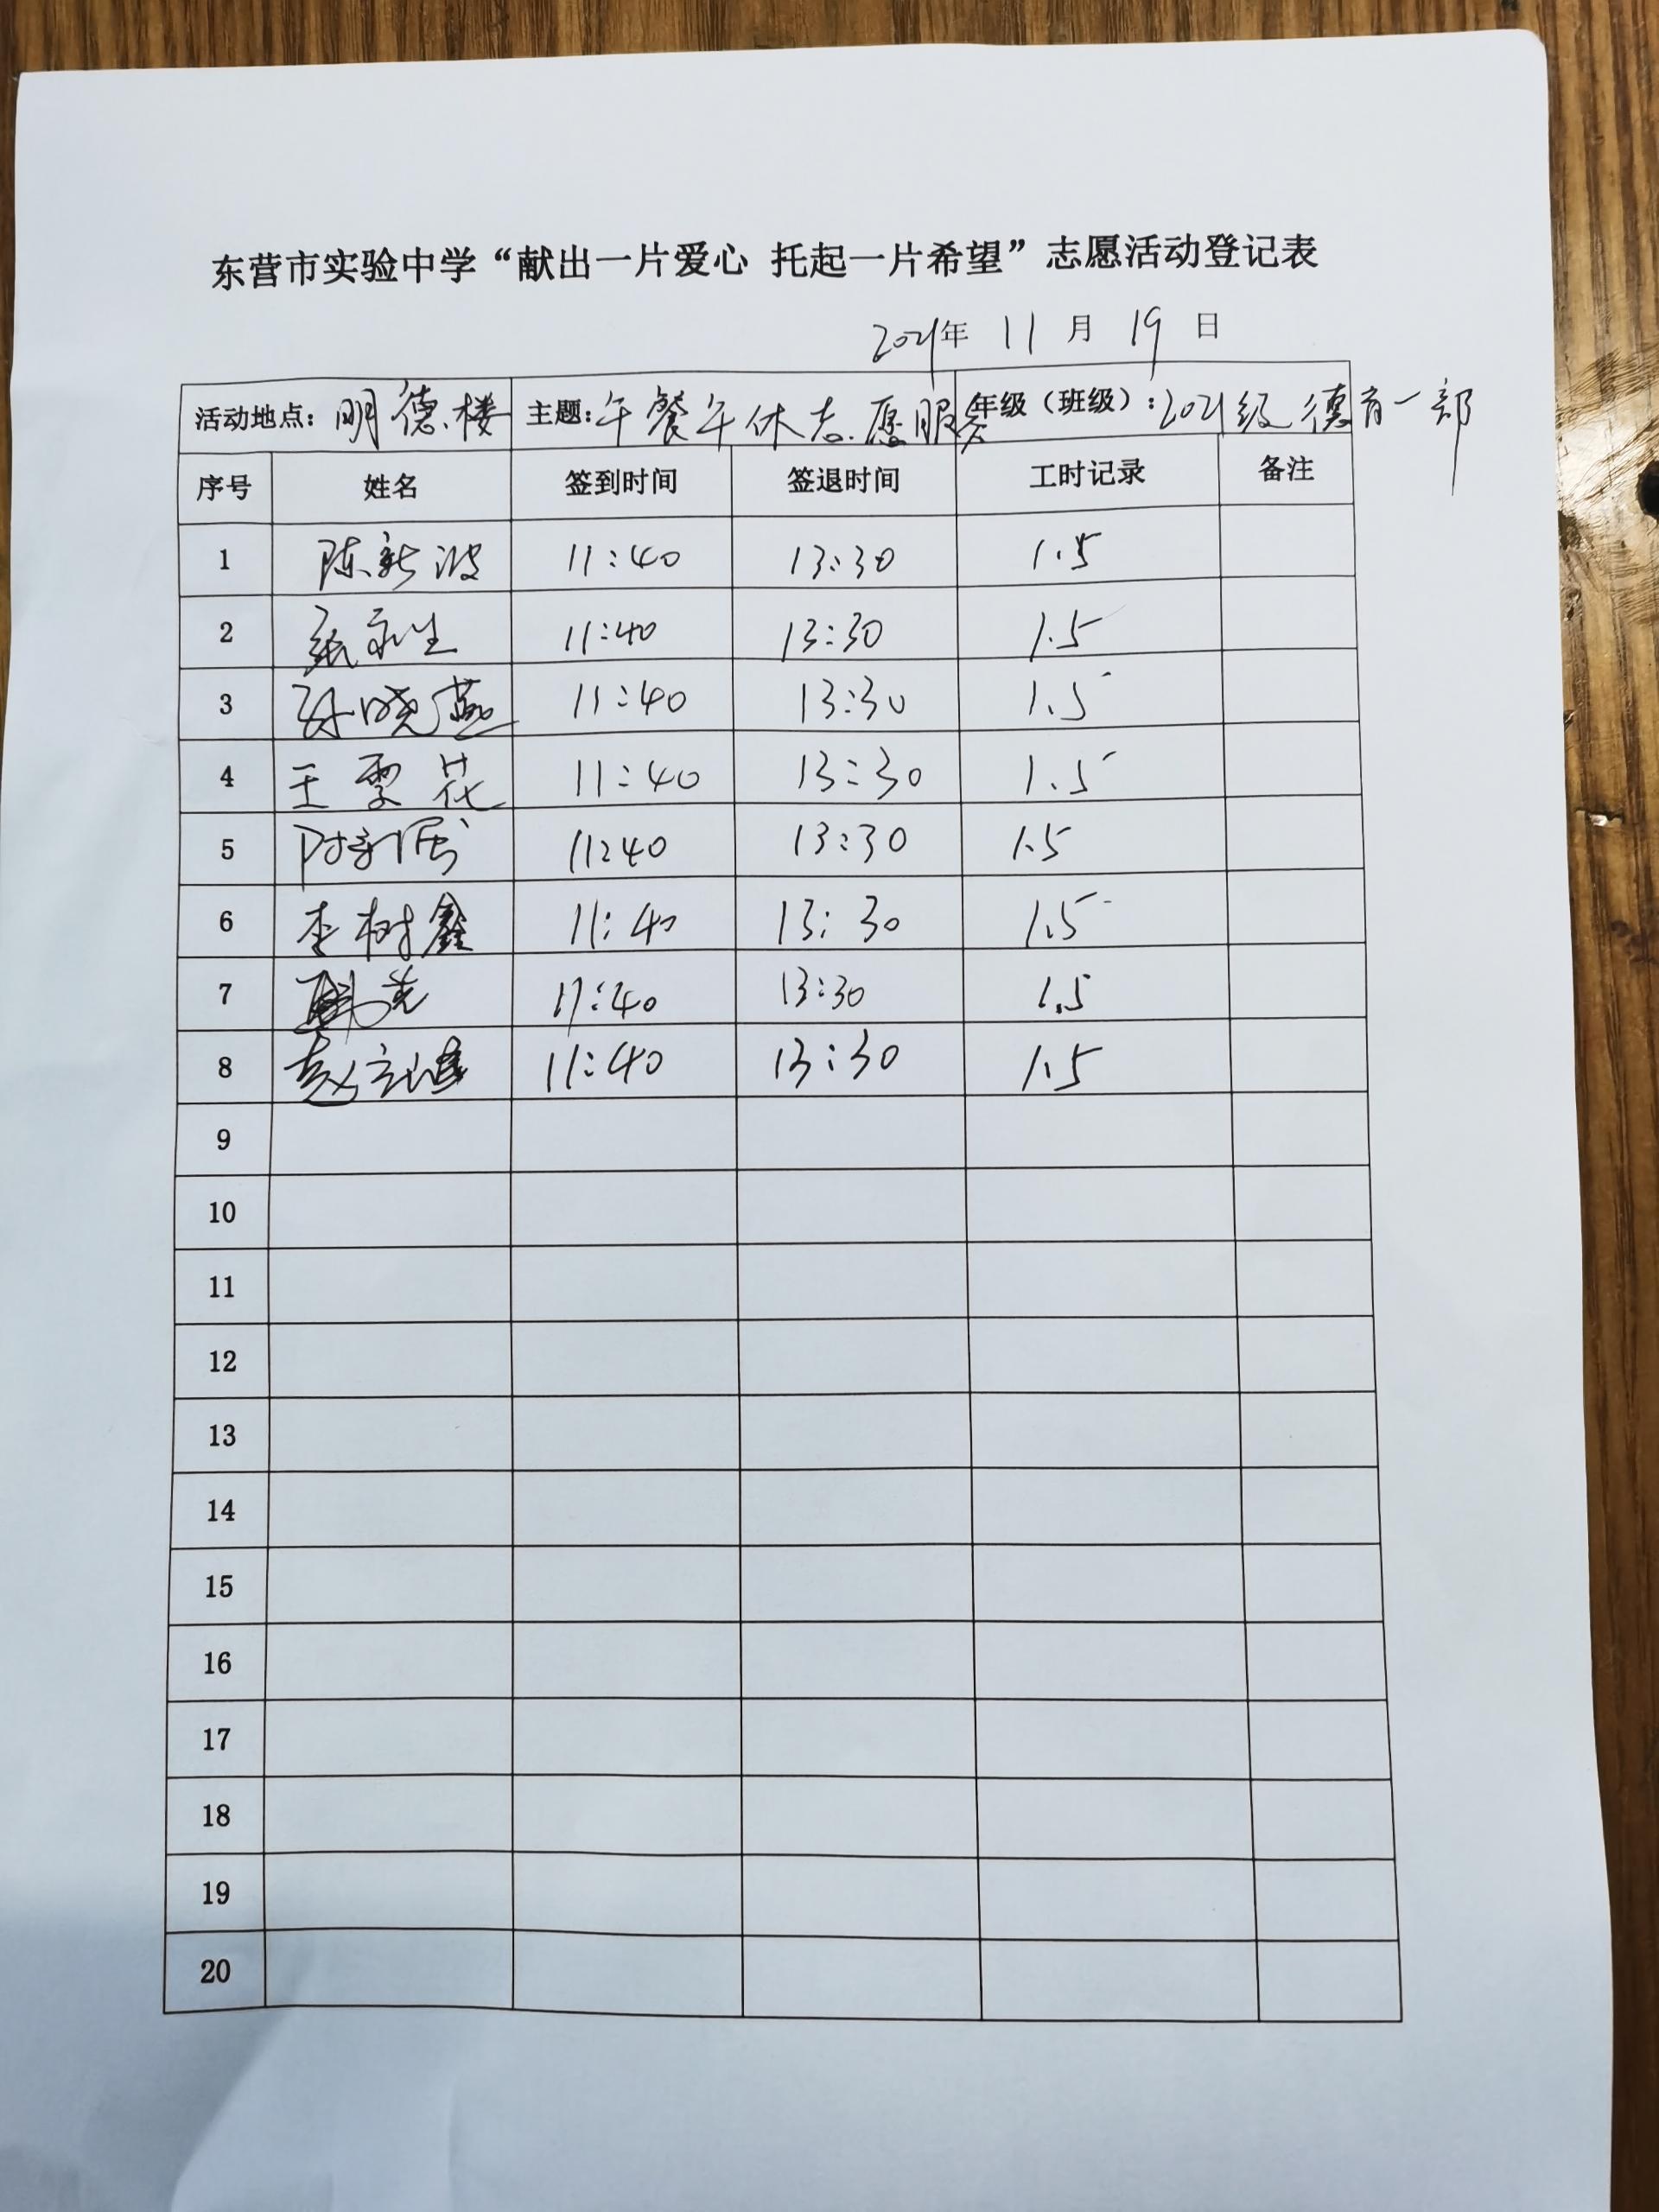 东营市实验中学“献出一片爱心 托起一片希望”志愿活动登记表
2021年 11 月 19 日
活动地点：明德楼 主题：午餐午休志愿服务 年级（班级）：2021级德育一部
序号 姓名 签到时间 签退时间 工时记录 备注
1 陈新波 11:40 13:30 1.5
2 张永生 11:40 13:30 1.5
3 孙晓燕 11:40 13:30 1.5
4 王雪花 11:40 13:30 1.5
5 11:40 13:30 1.5
6 李树鑫 11:40 13:30 1.5
7 11:40 13:30 1.5
8 11:40 13:30 1.5
9
10
11
12
13
14
15
16
17
18
19
20